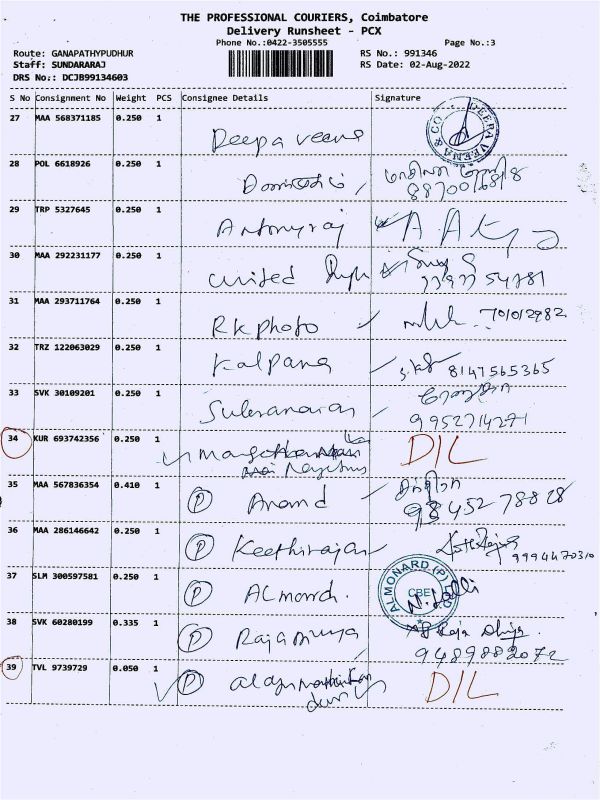 THE PROFESSIONAL COURIERS, Coimbatore
Delivery Runsheet - PCX
Phone No.:0422-3505555 Page No.:3
Route: GANAPATHYPUDHUR RS No.: 991346
Staff: SUNDARARAJ RS Date: 02-Aug-2022
DRS No.: DCJB99134603
S No Consignment No Weight PCS Consignee Details Signature
27 MAA 568371185 0.250 1 Deepa veena DEEPA VEENA & CO
28 POL 6618926 0.250 1
29 TRP 5327645 0.250 1 Antonyraj
30 MAA 292231177 0.250 1 United
31 MAA 293711764 0.250 1 RK photo
32 TRZ 122063029 0.250 1 Kalpana 8147565365
33 SVK 30109201 0.250 1 9952714271
34 KUR 693742356 0.250 1 DIL
35 MAA 567836354 0.410 1 P Anand 98452 78828
36 MAA 286146642 0.250 1 P Keethirajan 9994470310
37 SLM 300597581 0.250 1 P ALmonard. ALMONARD (P) CBE
38 SVK 60280199 0.335 1 P Rajapriya
9489882072
39 TVL 9739729 0.050 1 P DIL